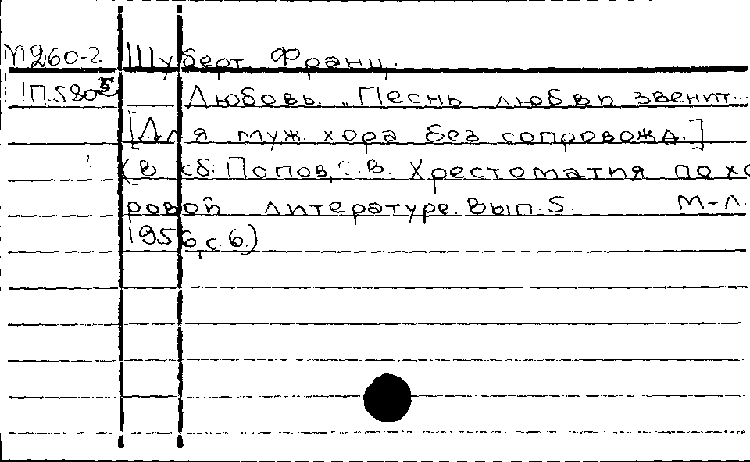 М260-2 Шуберт Франц.
П.580 Любовь. „Песнь любви звенит...
[Для муж. хора без сопровожд.]
(в сб. Попов, С.В. Хрестоматия по хо
ровой литературе. Вып. 5. М-Л.
1956, с. 6.)